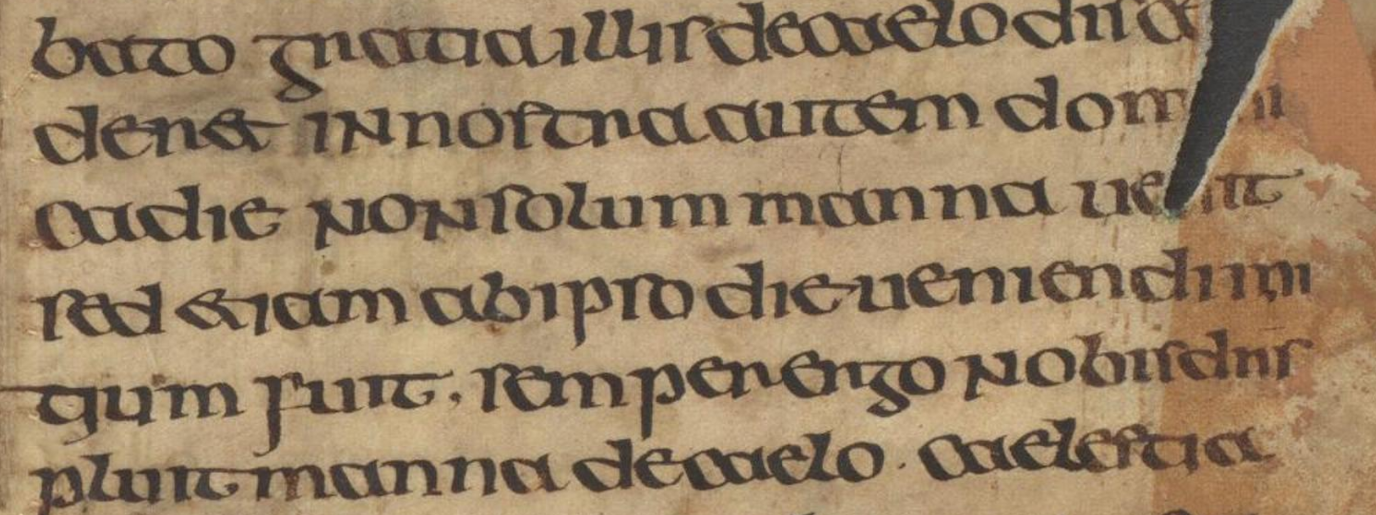 bato gratia illis de caelo disce
deret in nostra autem dom ni
ca die non solum manna ue it
sed etiam ab ipso die ueniendi ini
tium fuit. semper ergo nobis dn̄s
pluit manna de caelo. caelestia